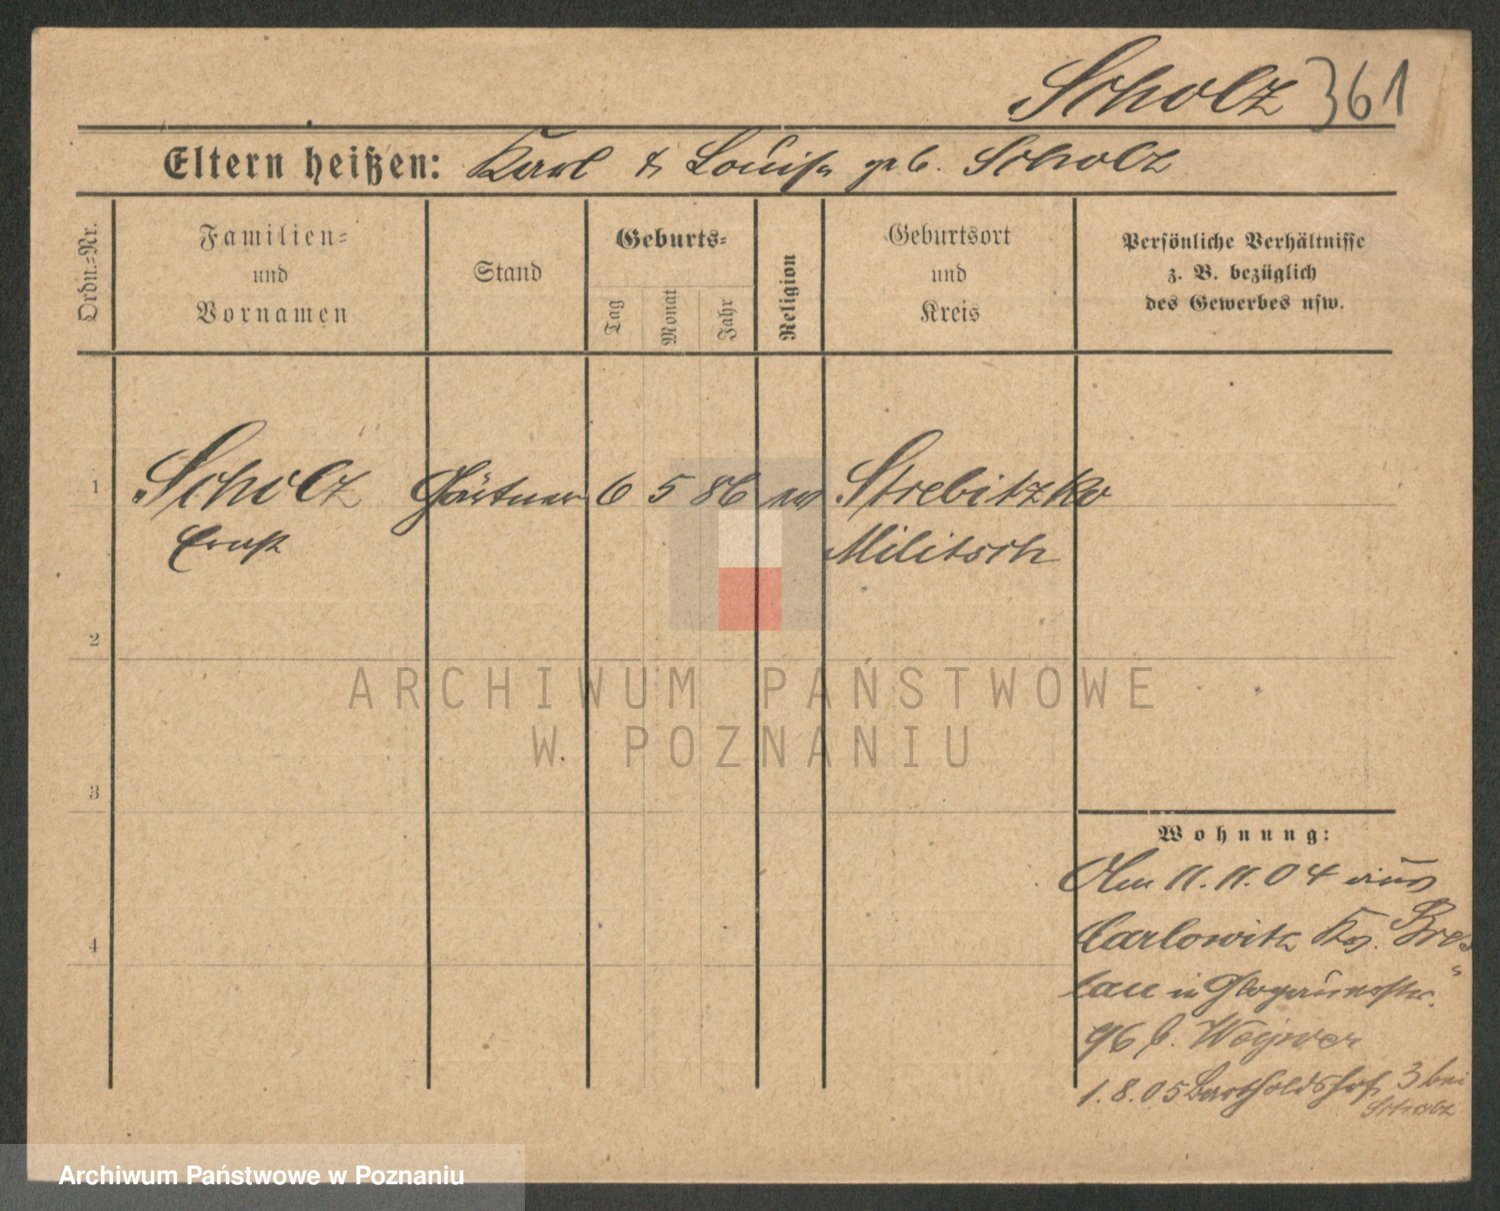 Scholz 361
Eltern heißen: Karl & Louise geb. Scholz
Ordn.-Nr.
Familien-
und
Vornamen
Stand
Geburts-
Tag
Monat
Jahr
Religion
Geburtsort
und
Kreis
Persönliche Verhältnisse
z. B. bezüglich
des Gewerbes usw.
1 Scholz Gärtner 6 5 86 ev Strebitzko
Ernst Militsch
2
ARCHIWUM PAŃSTWOWE
W POZNANIU
3
Wohnung:
Am 11.11.04 aus
Carlowitz Kr. Bres-
4
lau in Glogauerstr.
96 b. Wegner
1.8.05 Bertholdshof 3 bei
Scholz
Archiwum Państwowe w Poznaniu